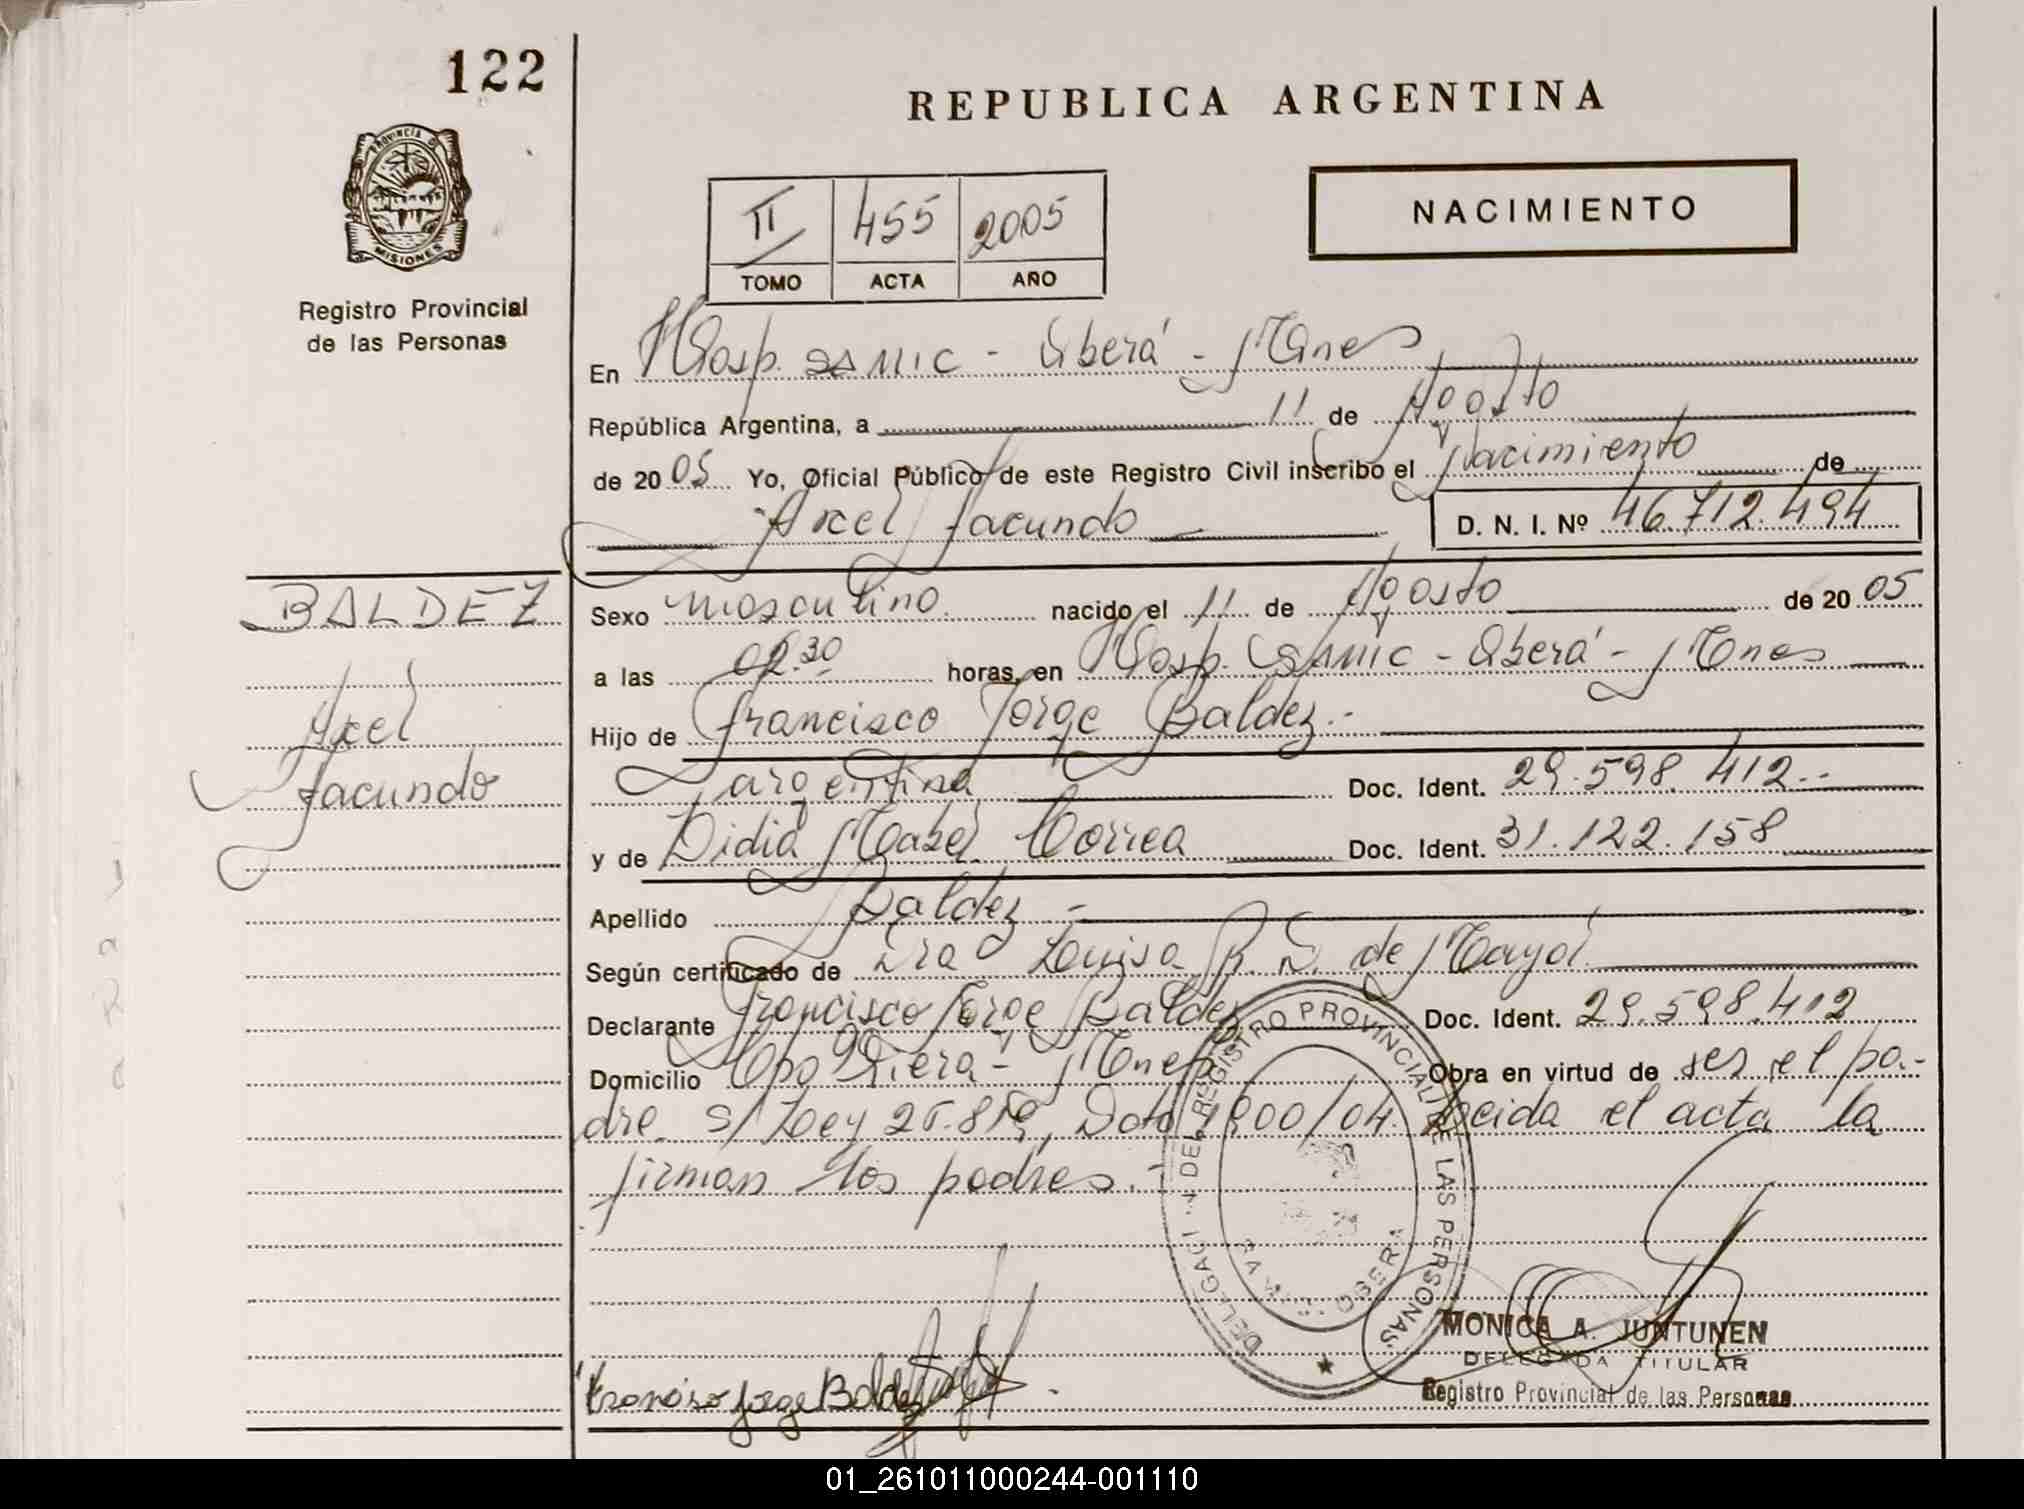 122
REPUBLICA ARGENTINA
PROVINCIA DE
MISIONES
Registro Provincial
de las Personas
II 455 2005
TOMO ACTA AÑO
NACIMIENTO
En Hosp. SAMIC - Oberá - Mnes
República Argentina, a 11 de Agosto
de 2005 Yo, Oficial Público de este Registro Civil inscribo el Nacimiento de
Axel Facundo D. N. I. Nº 46.712.494
BALDEZ
Axel
Facundo
Sexo masculino nacido el 11 de Agosto de 2005
a las 02.30 horas, en Hosp. SAMIC - Oberá - Mnes
Hijo de Francisco Jorge Baldez.-
argentina Doc. Ident. 29.598.412.-
y de Lidia Mabel Correa Doc. Ident. 31.122.158
Apellido Baldez -
Según certificado de Dra Luisa R. D. de Mayol
Declarante Francisco Jorge Baldez Doc. Ident. 29.598.412
Domicilio Cpo Viera - Mnes Obra en virtud de ser el pa-
dre s/ Ley 25.819, Dcto 1900/04. Leida el acta la
firman los padres.-
DELEGACI N DEL REGISTRO PROVINCIAL DE LAS PERSONAS
OBERA
Francisco Jorge Baldez
MONICA A. JUNTUNEN
DELEGADA TITULAR
Registro Provincial de las Personas
01_261011000244-001110